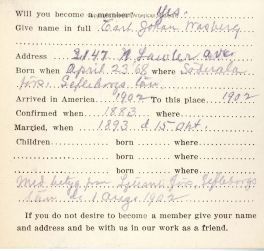 Will you become a member? Yes.
Give name in full Carl Johan Wasberg
Address 2147 N Lawler ave
Born when April 23 68 where Söderala
Gefleborgs län
Arrived in America 1902 To this place 1902
Confirmed when 1883 where
Married, when 1893 d 15 Okt. where
Children born where
born where
born where
Gefleborgs
län 1902
If you do not desire to become a member give your name
and address and be with us in our work as a friend.